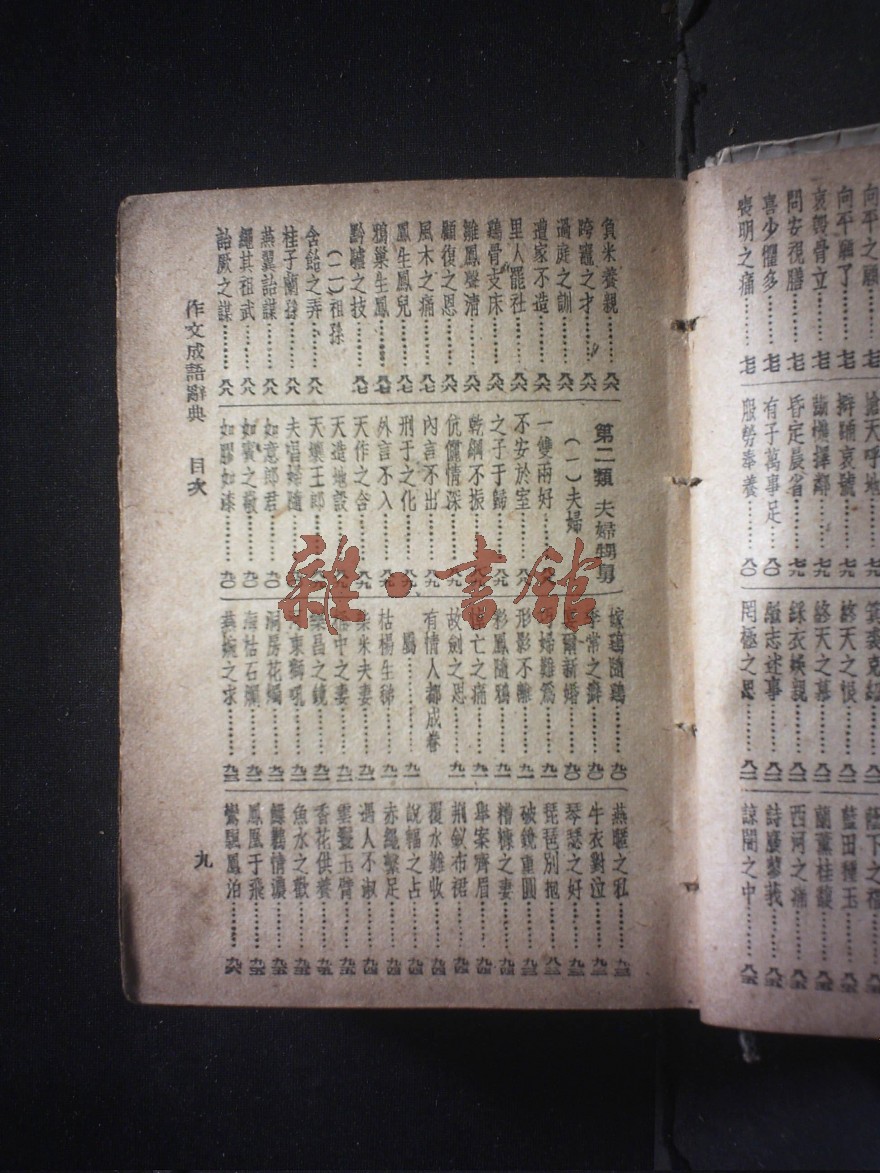 負米養親………八六
跨竈之才………八六
過庭之訓………八六
遭家不造………八六
里人罷社………八六
鷄骨支床………八六
雛鳳聲清………八六
顧復之恩………八七
風木之痛………八七
鳳生鳳兒………八七
鴉巢生鳳………八七
黔驢之技………八七
(二)祖孫
含飴之弄………八八
桂子蘭孫………八八
燕翼詒謀………八八
繩其祖武………八八
詒厥之謀………八八
第二類 夫婦甥舅
(一)夫婦
一雙兩好………八八
不安於室………八九
之子于歸………八九
乾綱不振………八九
伉儷情深………八九
內言不出………八九
刑于之化………八九
外言不入………八九
天作之合………八九
天造地設………八九
天壤王郎………九〇
夫唱婦隨………九〇
如意郎君………九〇
如賓之敬………九〇
如膠如漆………九〇
嫁鷄隨鷄………九〇
季常之癖………九〇
爾新婚………九〇
婦難爲………九一
形影不離………九一
彩鳳隨鴉………九一
亡之痛………九一
故劍之思………九一
有情人都成眷
屬………九一
枯楊生稊………九一
柴米夫妻………九一
中之妻………九二
樂昌之鏡………九二
東獅吼………九二
洞房花燭………九二
海枯石爛………九二
燕婉之求………九二
燕暱之私………九三
牛衣對泣………九三
琴瑟之好………九三
琵琶別抱………九三
破鏡重圓………九三
糟糠之妻………九三
舉案齊眉………九四
荆釵布裙………九四
覆水難收………九四
說輻之占………九四
赤繩繫足………九四
遇人不淑………九四
雲鬟玉臂………九五
香花供養………九五
魚水之歡………九五
鰈鶼情濃………九五
鳳凰于飛………九五
鸞飄鳳泊………九六
作文成語辭典 目次
九
向平之願
向平願了………七七
哀毀骨立………七七
問安視膳………七七
喜少懼多………七七
喪明之痛………七七
搶天呼地
擗踊哀號………七九
斷機擇鄰………七九
昏定晨省………七九
有子萬事足………八〇
服勞奉養………八〇
箕裘克紹
終天之恨
終天之慕
綵衣娛親
繼志述事
罔極之恩
蔭下之福
藍田種玉
蘭薰桂馥
西河之痛
詩廢蓼莪
諒闇之中
雜·書館